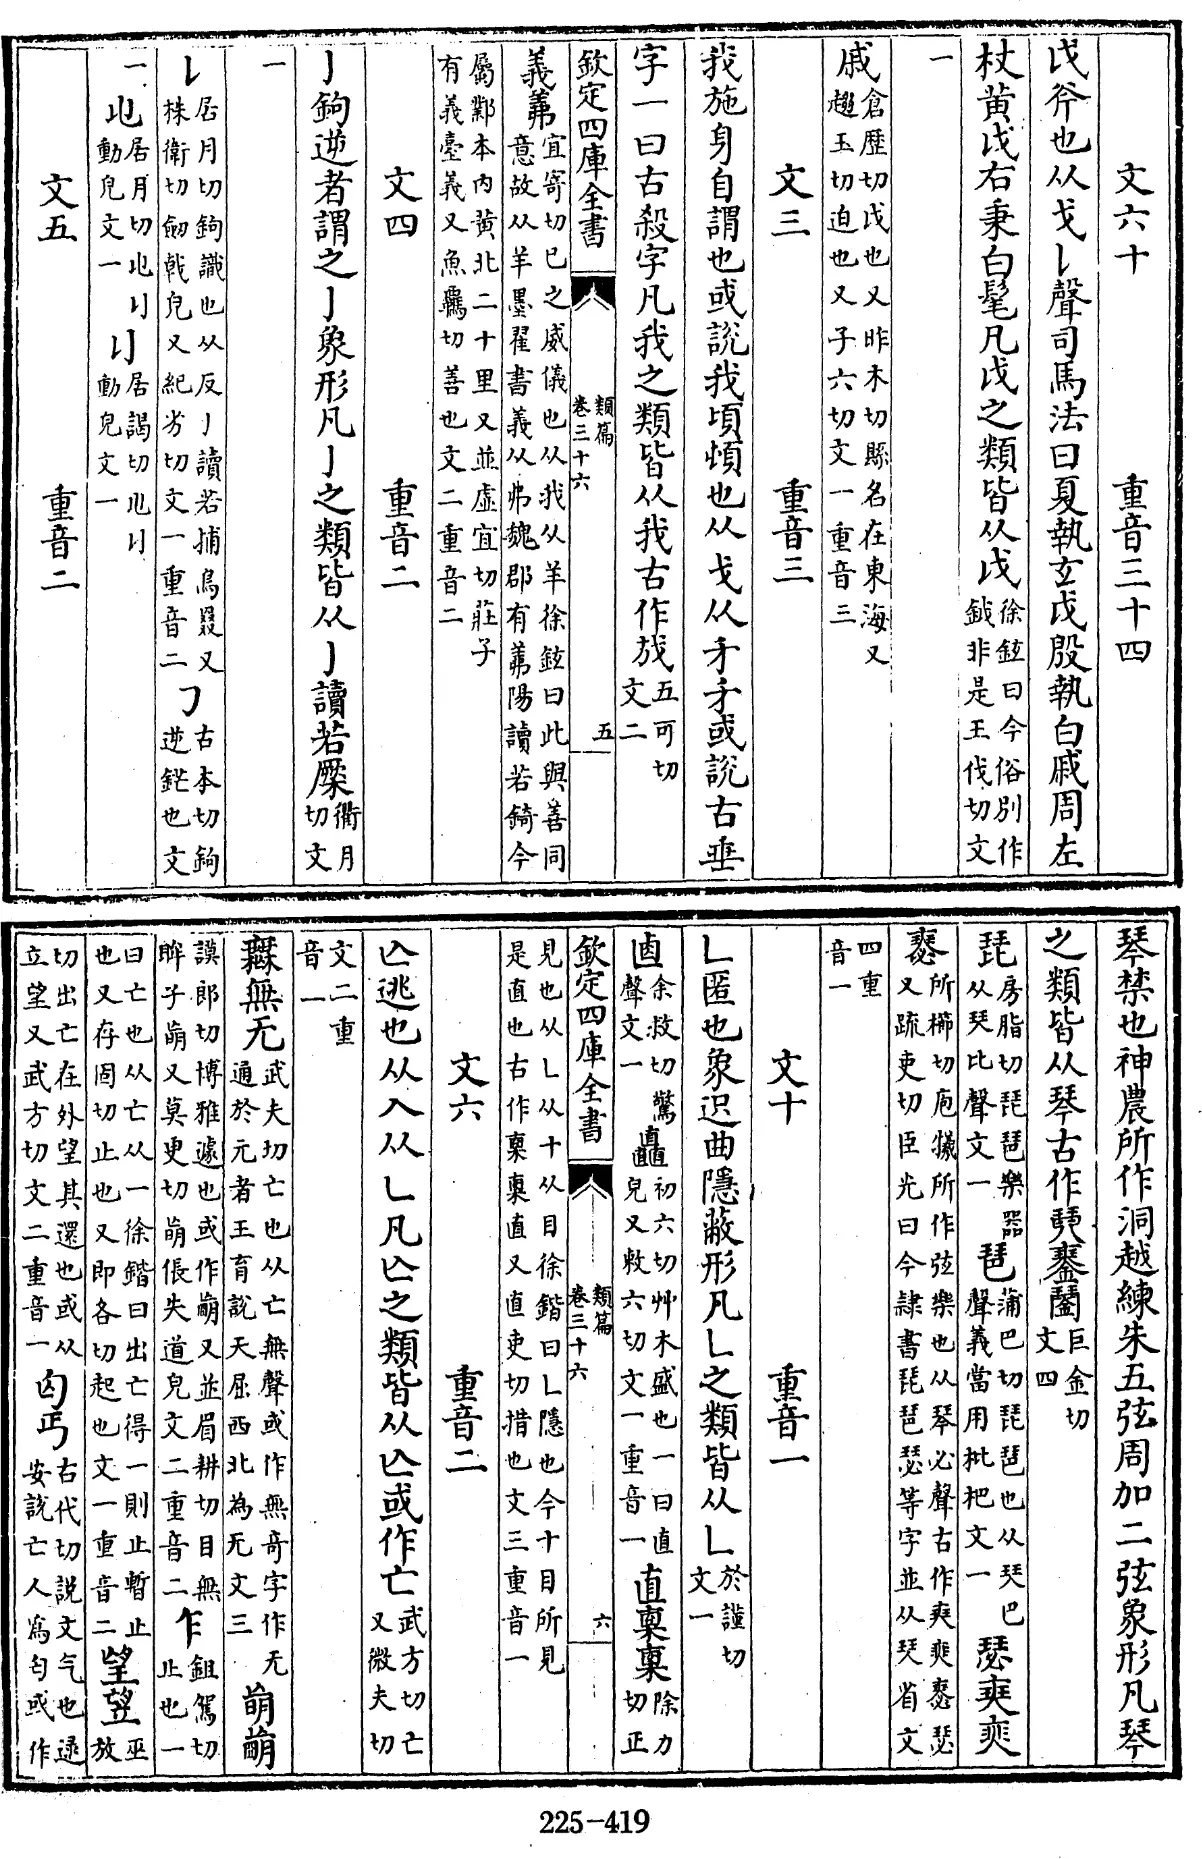 文六十　重音三十四
戉斧也从戈𠄌聲司馬法曰夏執玄戉殷執白戚周左
杖黃戉右秉白髦凡戉之類皆从戉徐鉉曰今俗别作鉞非是王伐切文
一
戚倉歷切戉也又昨木切縣名在東海又趨玉切迫也又子六切文一重音三
文三　重音三
我施身自謂也或說我頃頓也从戈从𠂹𠂹或說古垂
字一曰古殺字凡我之類皆从我古作𢦠五可切文二
欽定四庫全書　類篇卷三十六　五
義羛宜寄切己之威儀也从我从羊徐鉉曰此與善同意故从羊墨翟書義从弗魏郡有羛陽讀若錡今
屬鄴本內黃北二十里又並虛宜切莊子有義臺義又魚羈切善也文二重音二
文四　重音二
亅鉤逆者謂之亅象形凡亅之類皆从亅讀若橜衢月切文
一
𠄌居月切鉤識也从反亅讀若捕鳥罬又株衛切劒戟皃又紀劣切文一重音二　古本切鉤逆鋩也文
一　居月切動皃文一　居謁切動皃文一
文五　重音二
琴禁也神農所作洞越練朱五弦周加二弦象形凡琴
之類皆从琴古作巨金切文四
琵房脂切琵琶樂器从珡比聲文一琶蒲巴切琵琶也从珡巴聲義當用枇杷文一瑟
所櫛切庖犧所作弦樂也从琴必聲古作又疏吏切臣光曰今隷書琵琶瑟等字並从珡省文
四重音一
文十　重音一
𠃊匿也象迟曲隱蔽形凡𠃊之類皆从𠃊於謹切文一
余救切驚聲文一矗初六切艸木盛也一曰直皃又敕六切文一重音一直除力切正
欽定四庫全書　類篇卷三十六　六
見也从𠃊从十从目徐鍇曰𠃊隱也今十目所見是直也古作又直吏切措也文三重音一
文六　重音二
亾逃也从入从𠃊凡亾之類皆从亾或作亡武方切亡又微夫切
文二重音一
無无武夫切亡也从亡無聲或作無奇字作无通於元者王育說天屈西北為无文三
謨郎切博雅遽也或作又並眉耕切目無眸子又莫更切倀失道皃文二重音二乍鉏駕切止也一
曰亡也从亡从一徐鍇曰出亡得一則止暫止也又存固切止也又即各切起也文一重音二望朢巫放
切出亡在外望其還也或从立望又武方切文二重音一匃丐古代切說文气也逯安說亡人為匃或作
225-419